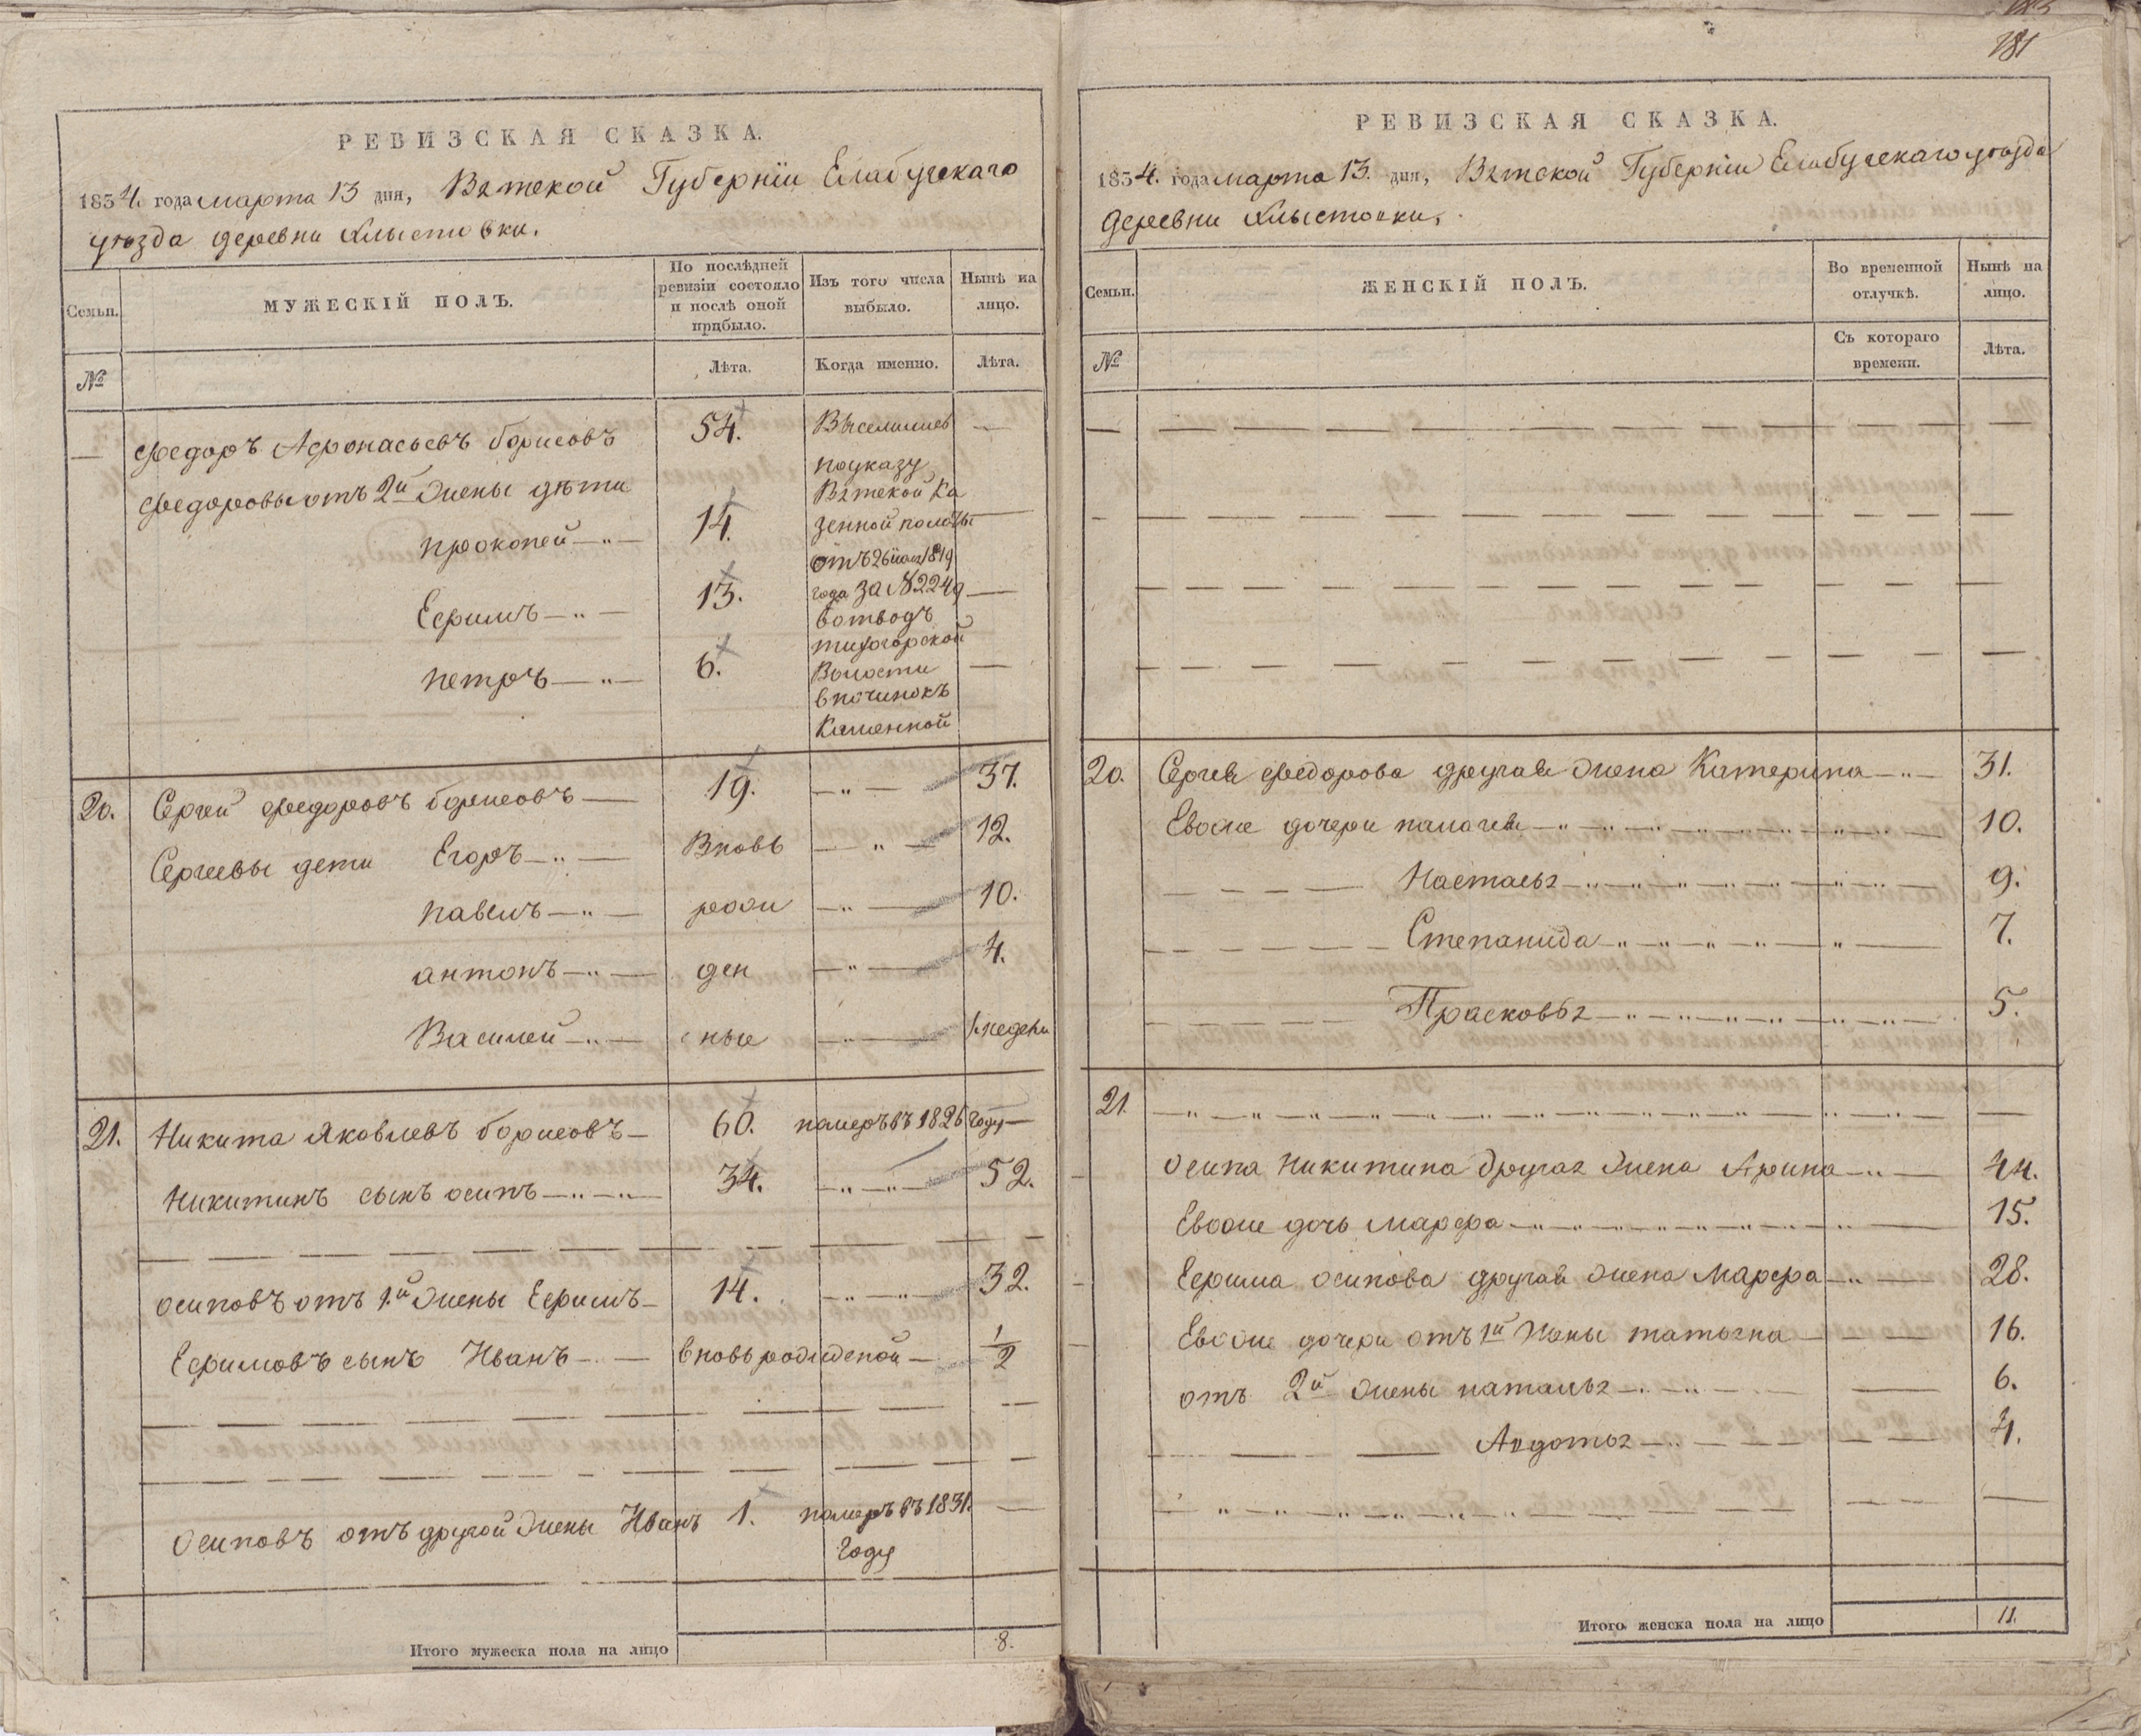 РЕВИЗСКАЯ СКАЗКА.
1834. года марта 13 дня, Вятской Губернiи Елабугскаго
уѣзда деревни Хлыстовки.
Семьи.
МУЖЕСКІЙ ПОЛЪ.
По послѣдней
ревизіи состояло
и послѣ оной
прибыло.
Изъ того числа
выбыло.
Нынѣ на
лицо.
№
Лѣта.
Когда именно.
Лѣта.
— Федоръ Афонасьевъ борисовъ 54. Выселились —
поуказу
Федоровы отъ 2й жены дѣти Вятской Ка
прокопей 14. зенной полаты —
отъ 26 1819
Ефимъ 13. года за №2249 —
вотводъ
петръ 6. Волости —
впочинокъ
Каменной
20. Сергей Федоровъ борисовъ 19. — 37.
Сергеевы дети Егоръ Вновь — 12.
павелъ рожи — 10.
антонъ ден — 4.
Василей ные — 1. недели
21. Никита Яковлевъ борисовъ 60. померъ въ 1826 году —
Никитинъ сынъ осипъ 34. — 52.
осиповъ отъ 1.й жены Ефимъ 14. — 32.
Ефимовъ сынъ Иванъ вновь рожденой 1/2
Осиповъ отъ другой жены Иванъ 1. померъ въ 1831. —
году
Итого мужеска пола на лицо 8.
181
РЕВИЗСКАЯ СКАЗКА.
1834. года марта 13. дня, Вятской Губернiи Елабугскаго уѣзда
деревни Хлыстовки.
Семьи.
ЖЕНСКІЙ ПОЛЪ.
Во временной
отлучкѣ.
Нынѣ на
лицо.
№
Съ котораго
времени.
Лѣта.
20. Сергея Федорова другая жена Катерина 31.
Евоже дочери палагея 10.
Настасья 9.
Степанида 7.
Прасковья 5.
21.
Осипа Никитина другая жена Арина 44.
Евоже дочь марфа 15.
Ефима осипова другая жена Марфа 28.
Евоже дочери отъ 1й жены татьяна 16.
отъ 2й жены наталья 6.
Авдотья 4.
Итого женска пола на лицо 11.